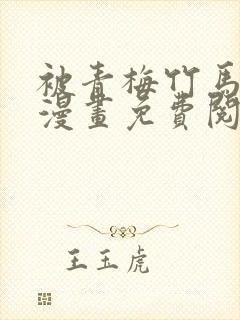 被青梅竹馬
漫畫免費閱
王玉虎